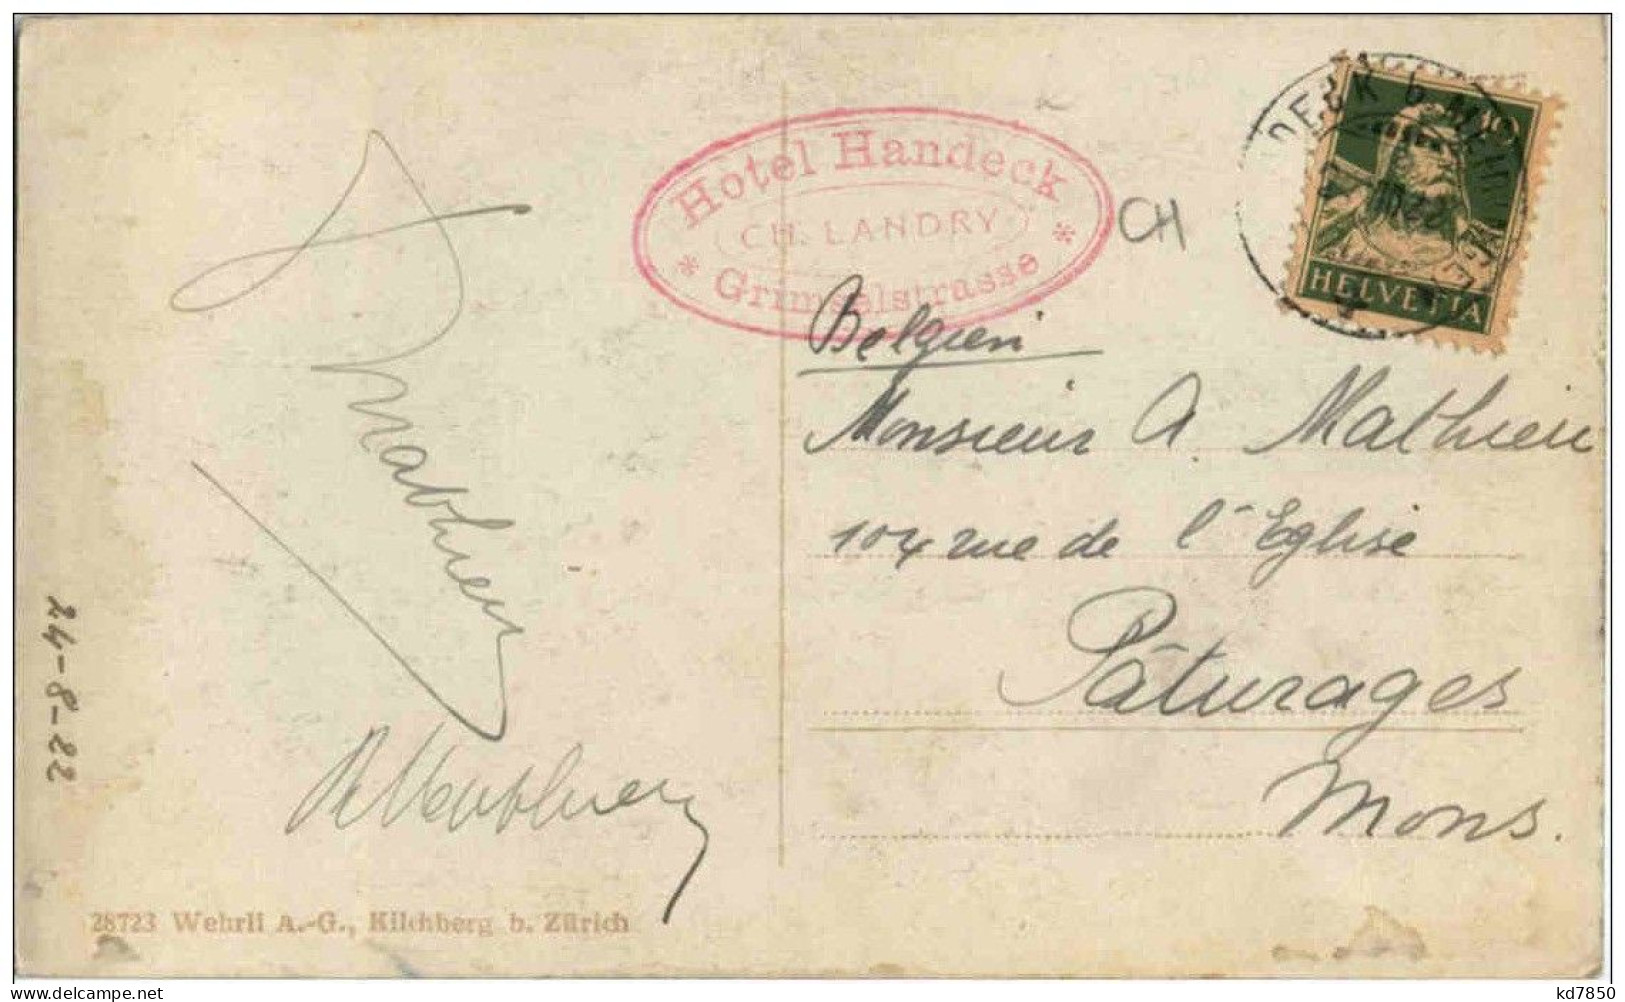 Hotel Handeck
CH. LANDRY
* Grimselstrasse *
CH
10
HELVETIA
Belgien
Monsieur A. Mathieu
104 rue de l'Eglise
Pâturages
Mons.
Mathieu
24-8-22
28723 Wehrli A.-G., Kilchberg b. Zürich
delcampe.net
kd7850